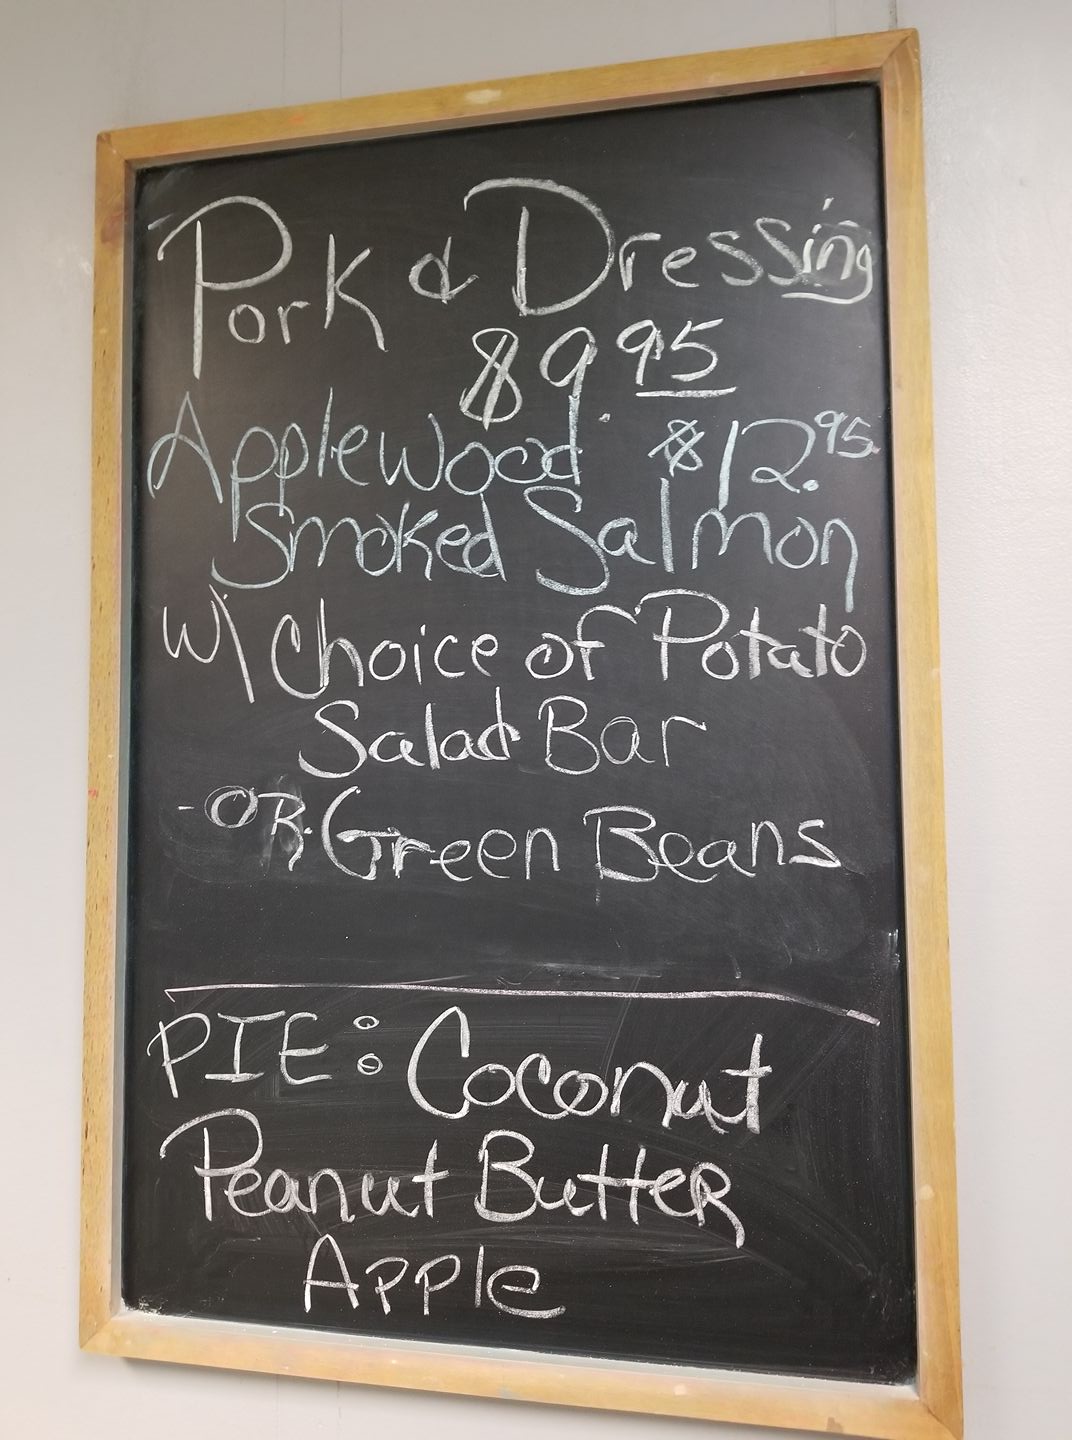 Pork & Dressing
$9.95
Applewood $12.95
Smoked Salmon
w\ Choice of Potato
Salad Bar
-OR. Green Beans
PIE: Coconut
Peanut ButteR
Apple